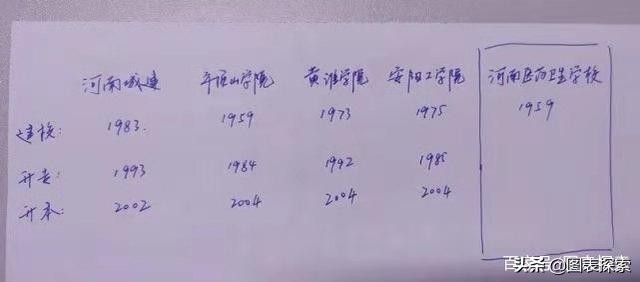 河南城建 平顶山学院 黄淮学院 安阳工学院 河南医药卫生学校
建校: 1983. 1959 1973 1975 1959
升专: 1993 1984 1992 1985
升本: 2002 2004 2004 2004
头条@图表探索